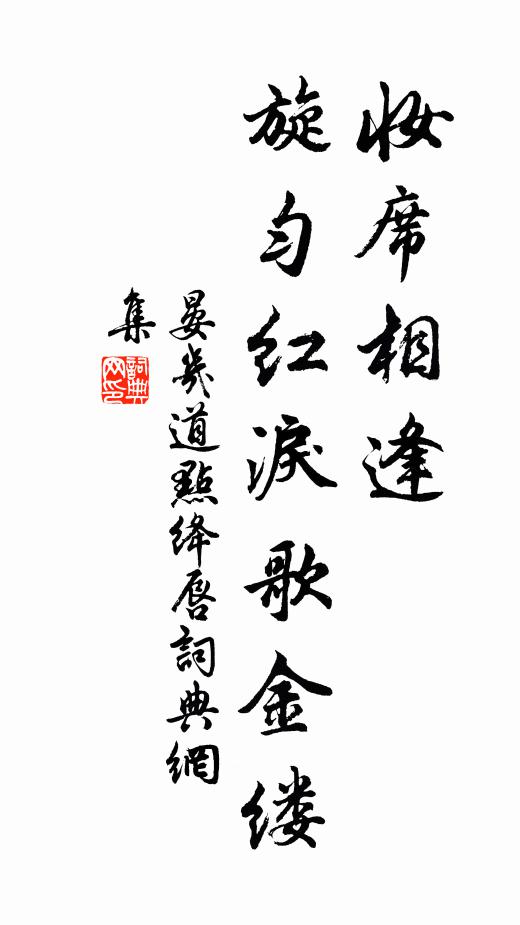 妝席相逢
旋勻红淚歌金缕
晏幾道點絳唇詞典網
集
詞典
网印